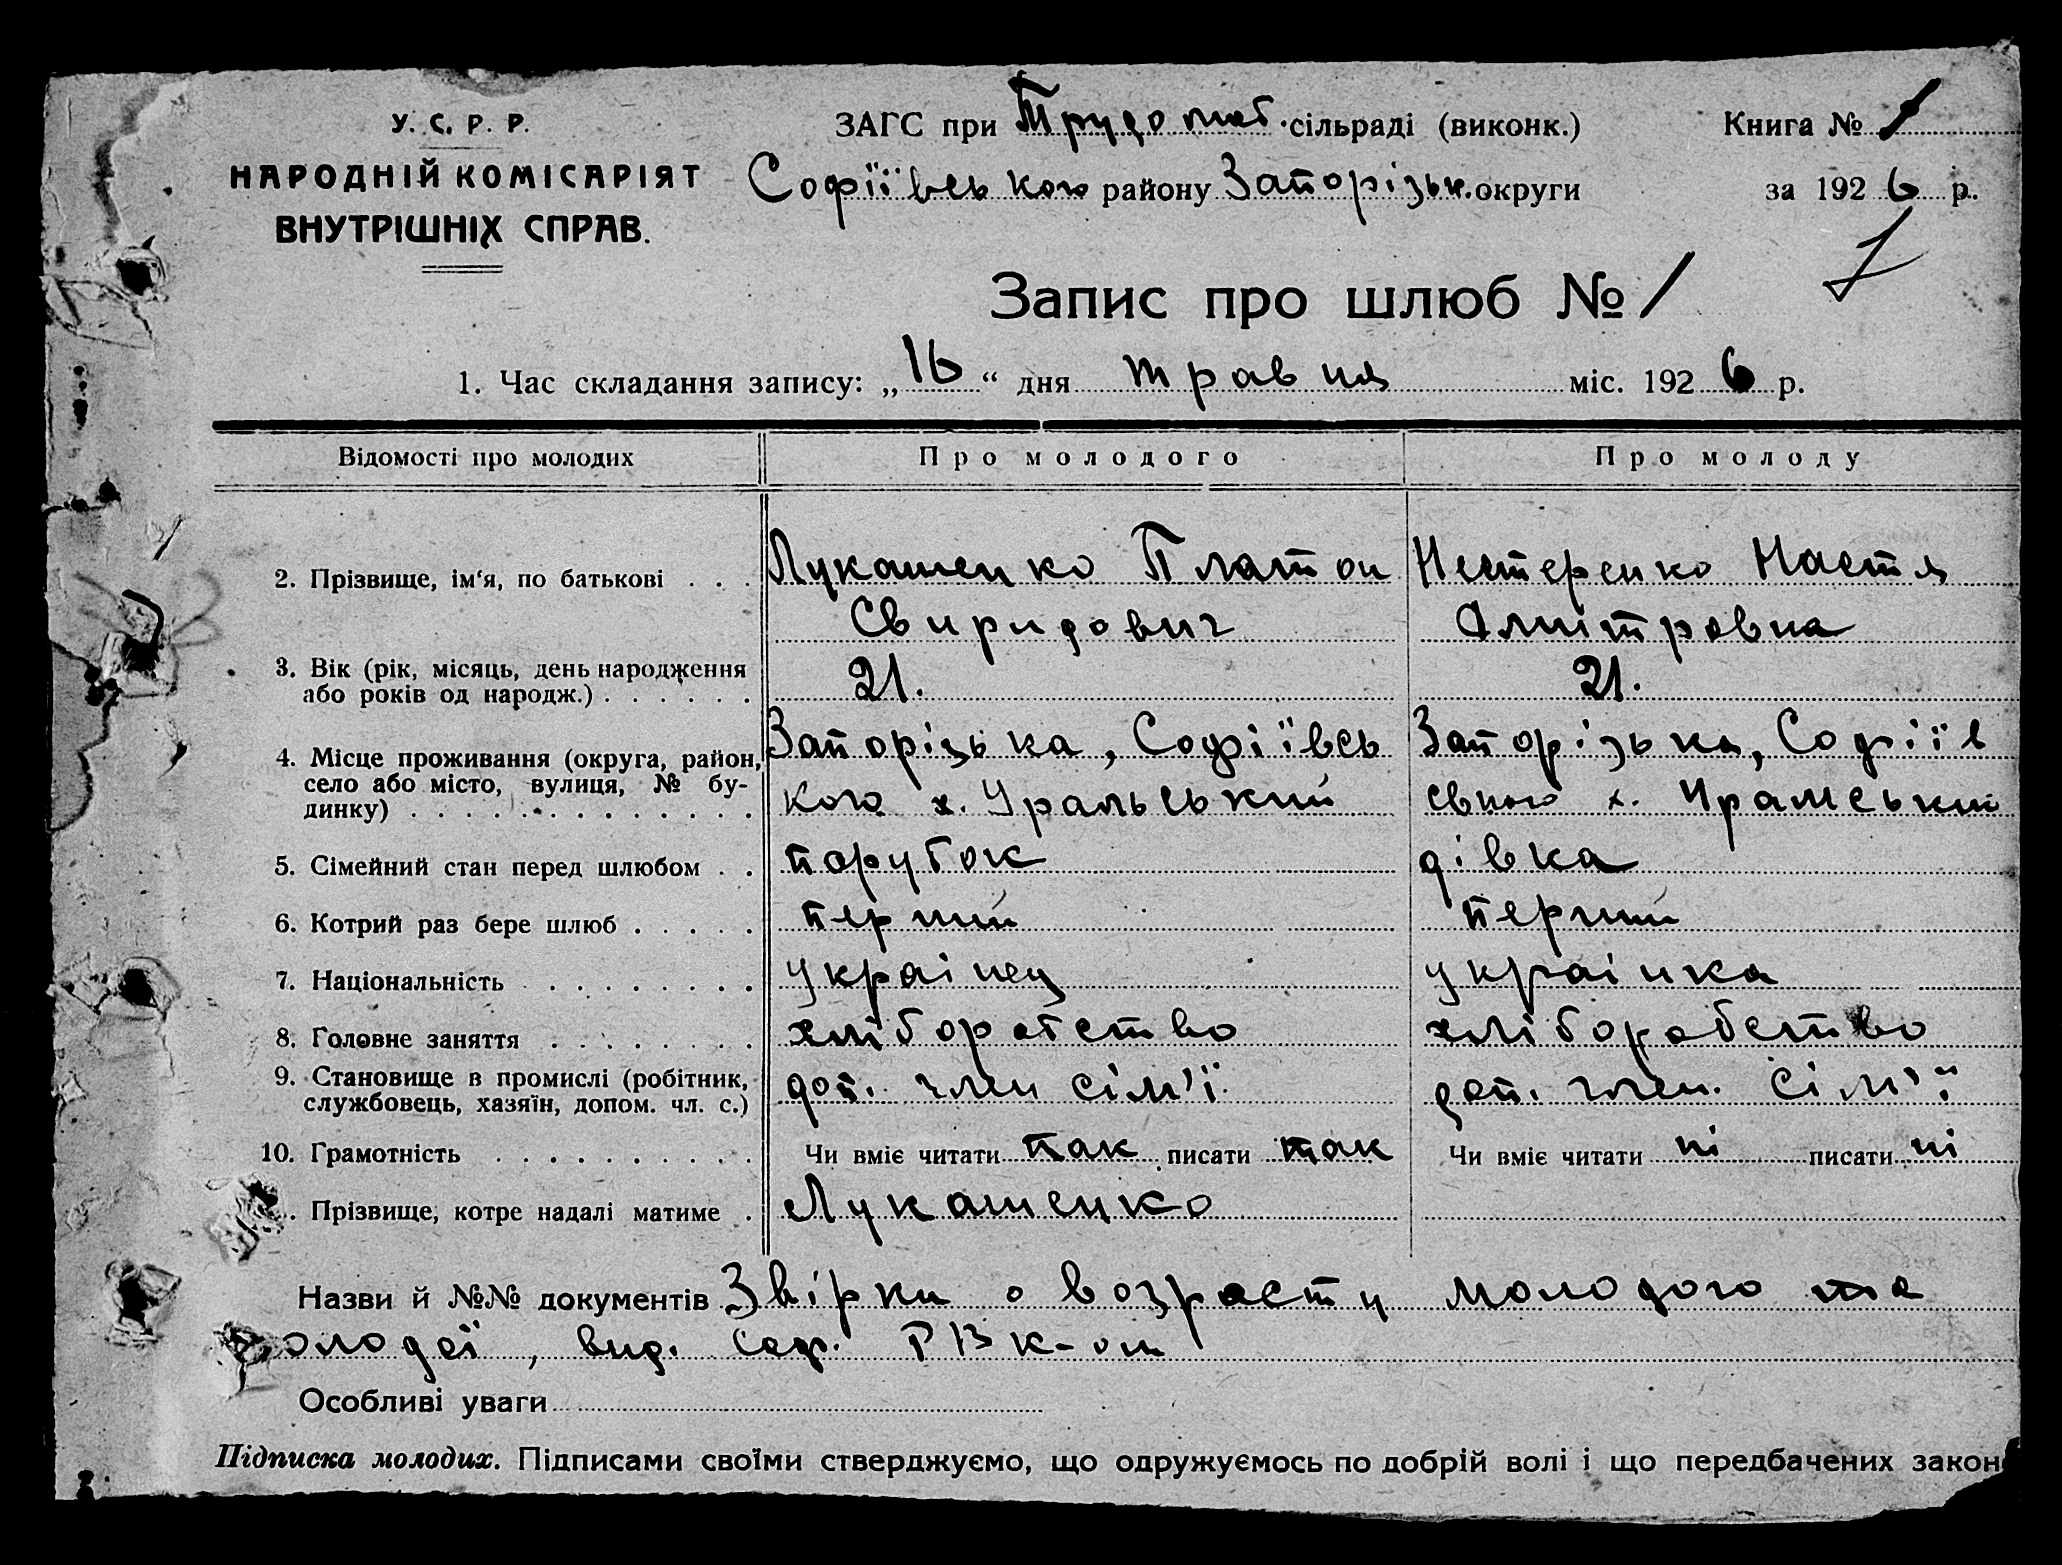 У. С. Р. Р.
НАРОДНІЙ КОМІСАРІЯТ
ВНУТРІШНІХ СПРАВ.
ЗАГС при сільраді (виконк.)
Софіївського району Запорізьк. округи
Книга № 1
за 1926 р.
1
Запис про шлюб № 1
1. Час складання запису: „16“ дня травня міс. 1926 р.
Відомості про молодих Про молодого Про молоду
2. Прізвище, ім‘я, по батькові . . . Лукашенко Платон Нестеренко Настя
Свиридович Дмитровна
3. Вік (рік, місяць, день народження
або років од народж.) . . . . . . 21. 21.
4. Місце проживання (округа, район, Запорізька, Софіївсь Запорізька, Софіїв
село або місто, вулиця, № бу- кого х. Уральський ського х. Уральський
динку) . . . . . . . . . . . . .
5. Сімейний стан перед шлюбом . . парубок дівка
6. Котрий раз бере шлюб . . . . . перший перший
7. Національність . . . . . . . . українец українка
8. Головне заняття . . . . . . . . хліборобство хліборобство
9. Становище в промислі (робітник, доп. член сім'ї. доп. член. сім'ї
службовець, хазяїн, допом. чл. с.)
10. Грамотність . . . . . . . . . . Чи вміє читати так писати так Чи вміє читати ні писати ні
. Прізвище, котре надалі матиме . Лукашенко
Назви й №№ документів Звірки о возрасту молодого та
молодої, вид. Соф. РВК-ом
Особливі уваги
Підписка молодих. Підписами своїми стверджуємо, що одружуємось по добрій волі і що передбачених закон